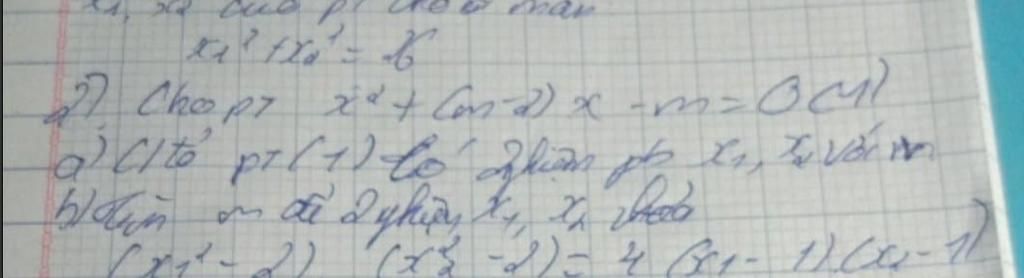 x1, x2 của pt thoả mãn
x₁² + x₂² = 26
2) Cho pt x² + (m-2) x - m = 0 (1)
a) C/tỏ pt (1) có 2 nghiệm pb x₁, x₂ với m
b) Tìm m để 2 nghiệm x₁, x₂ thoả
(x₁² - 2) (x₂² - 2) = 4 (x₁ - 1) (x₂ - 1)